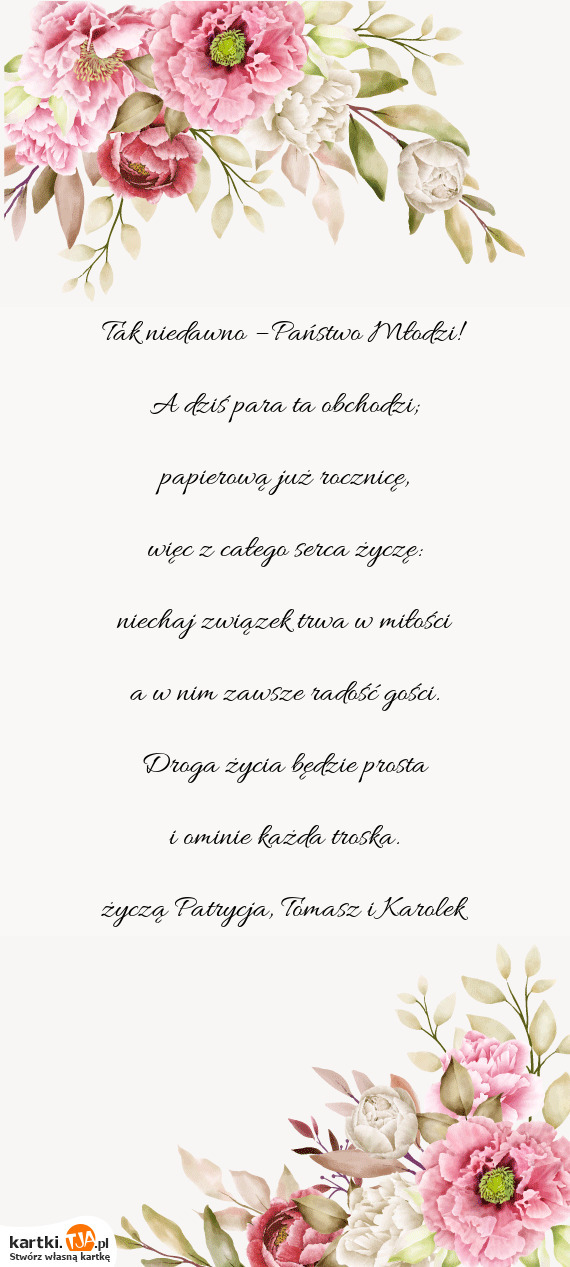 Tak niedawno – Państwo Młodzi!
A dziś para ta obchodzi;
papierową już rocznicę,
więc z całego serca życzę:
niechaj związek trwa w miłości
a w nim zawsze radość gości.
Droga życia będzie prosta
i ominie każda troska.
życzą Patrycja, Tomasz i Karolek
kartki.TJA.pl
Stwórz własną kartkę